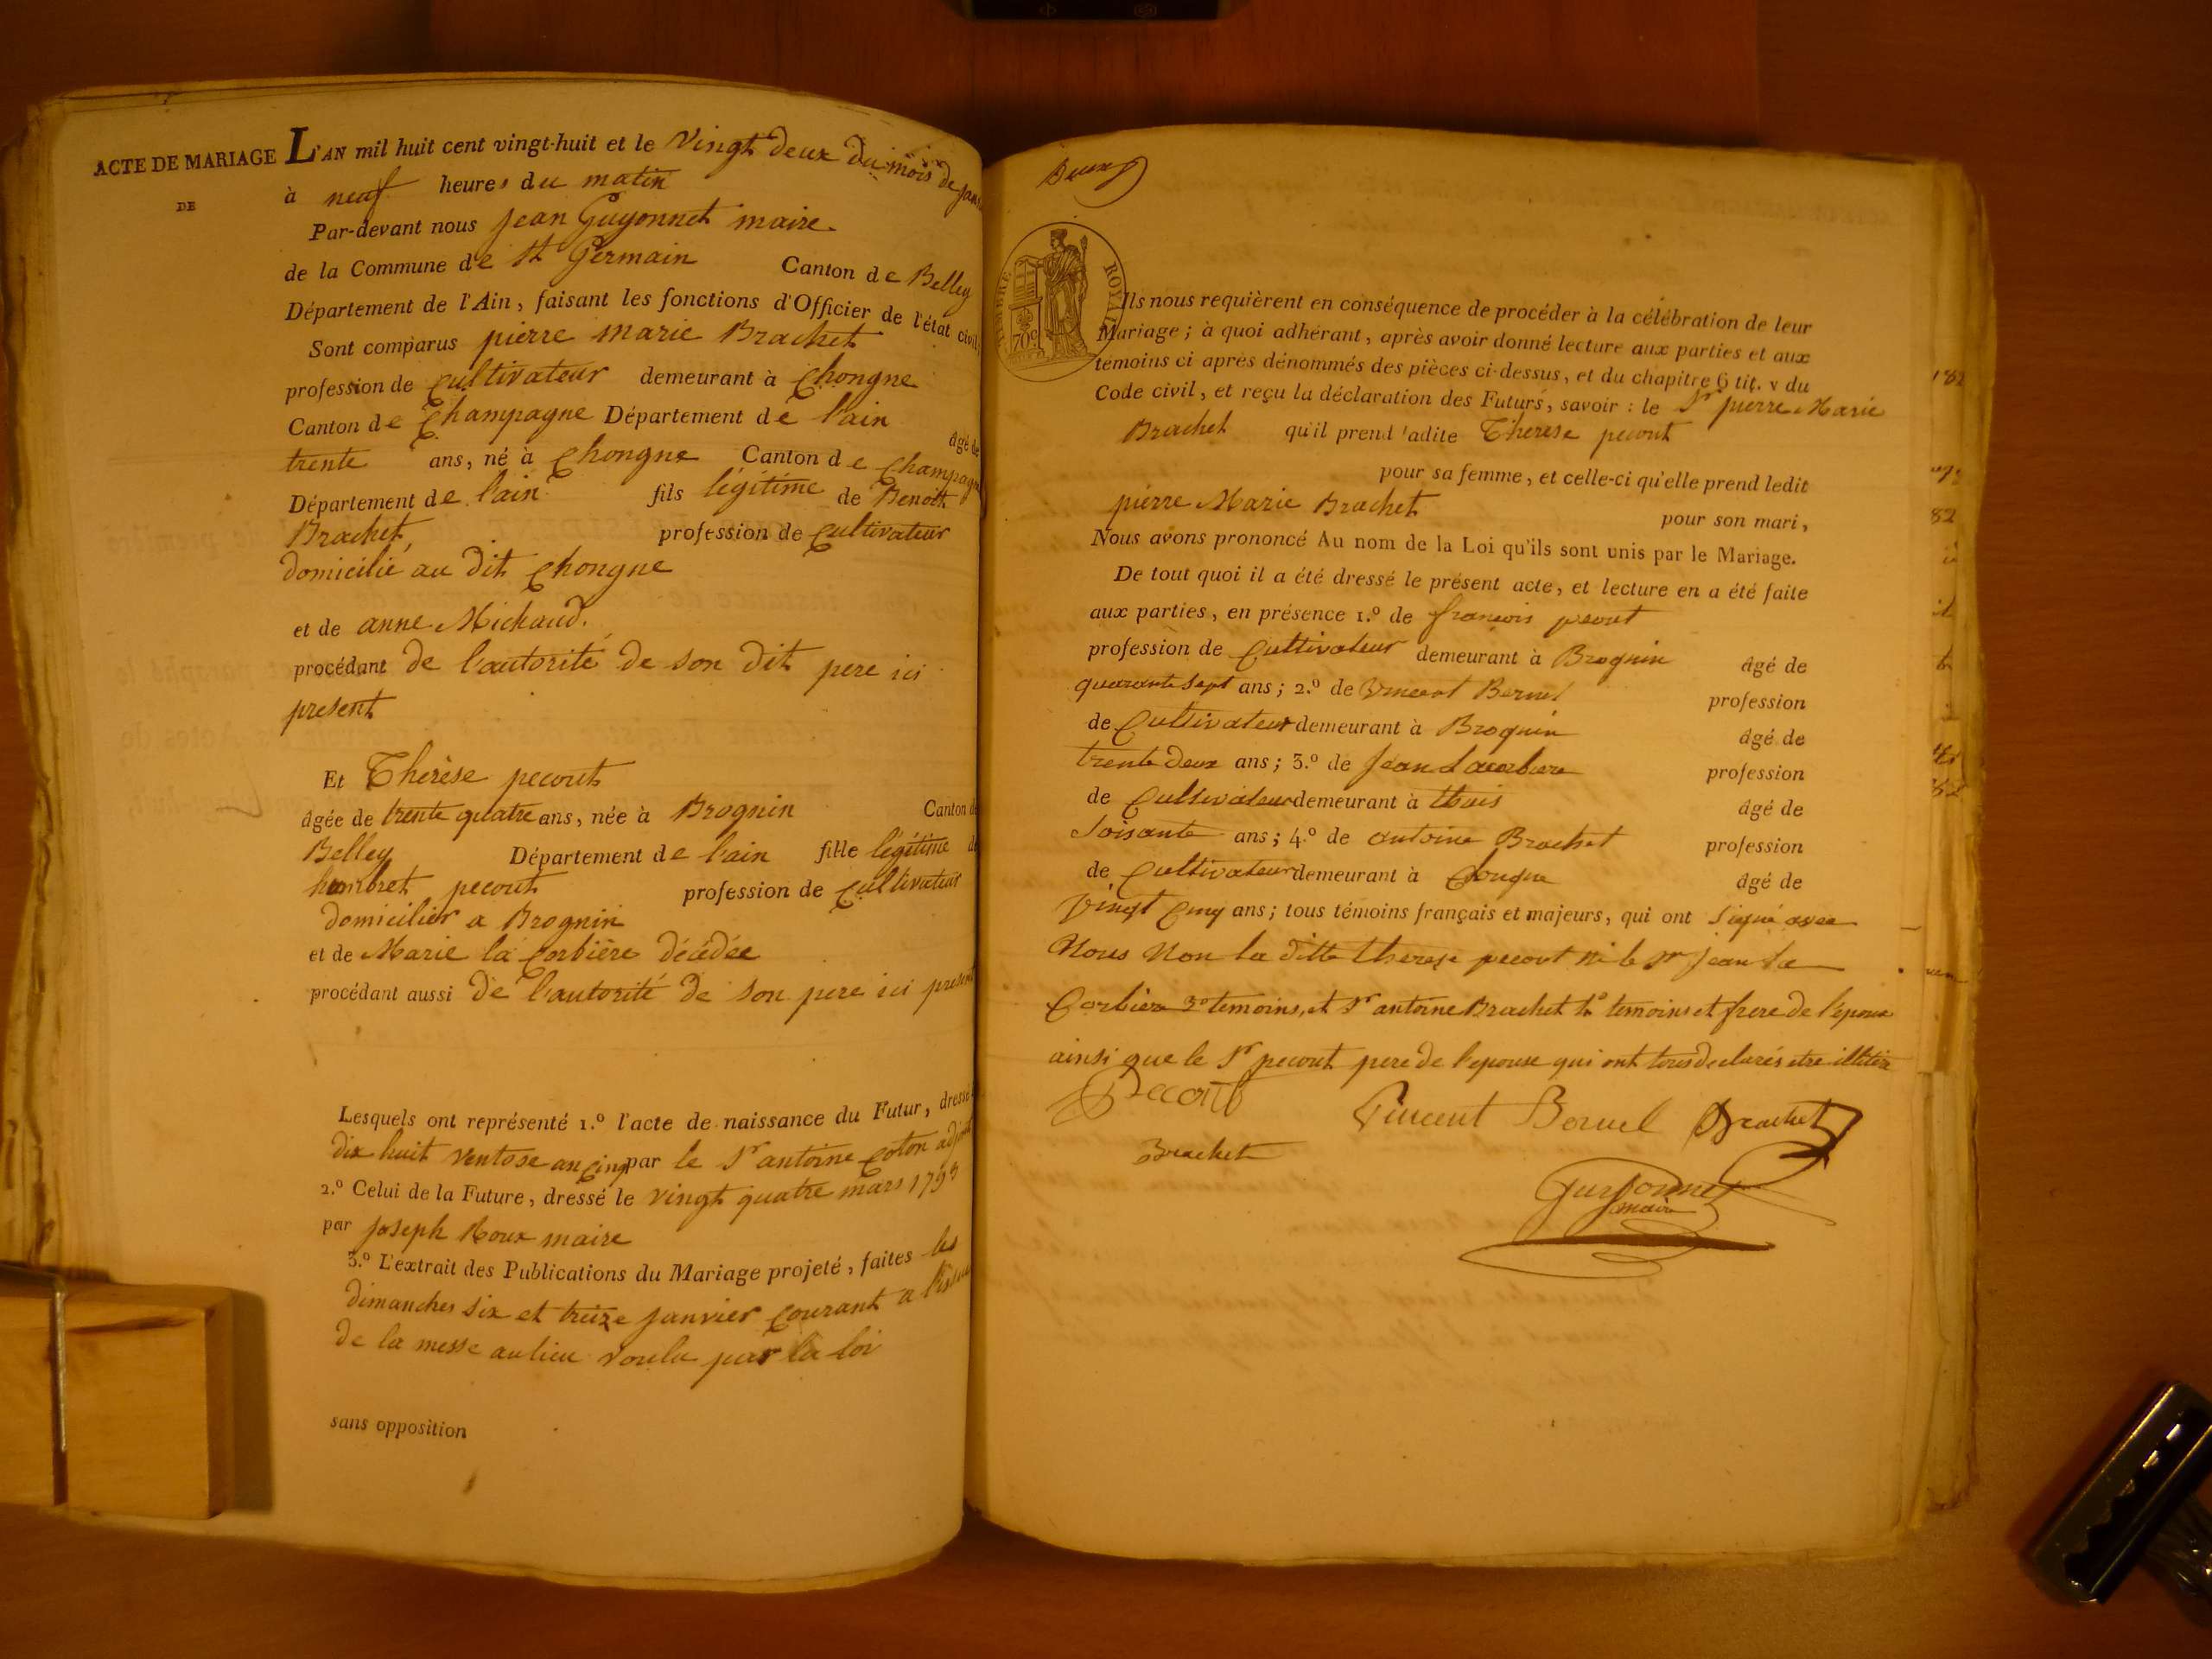 ACTE DE MARIAGE
DE
L'AN mil huit cent vingt-huit et le Vingt deux du mois de
à neuf heures du matin
Par-devant nous Jean Guyonnet maire.
de la Commune de St Germain Canton de Belley
Département de l'Ain, faisant les fonctions d'Officier de l'état civil,
Sont comparus pierre marie Brachet
profession de Cultivateur demeurant à Chongne
Canton de Champagne Département de l'ain
âgé de
trente ans, né à Chongne Canton de Champagne
Département de l'ain fils légitime de Benoit
Brachet, profession de Cultivateur
domicilié au dit Chongne
et de anne Michaud.
procédant de l'autorité de son dit pere ici
present
Et Therèse pecout
âgée de trente quatre ans, née à Brognin Canton de
Belley Département de l'ain fille légitime de
humbret pecout profession de Cultivateur
domicilier a Brognin
et de Marie la Corbière décédée
procédant aussi de l'autorité de son pere ici present
Lesquels ont représenté 1.º l'acte de naissance du Futur, dressé
dix huit Ventose an Cinq par le Sr antoine Coton adjoint
2.º Celui de la Future, dressé le vingt quatre mars 1793
par Joseph Roux maire
3.º L'extrait des Publications du Mariage projeté, faites les
dimanches six et treize Janvier Courant a l'issue
de la messe au lieu voulu par la loi
sans opposition
TIMBRE ROYAL
70c
Ils nous requièrent en conséquence de procéder à la célébration de leur
Mariage; à quoi adhérant, après avoir donné lecture aux parties et aux
témoins ci après dénommés des pièces ci-dessus, et du chapitre 6 tit. v du
Code civil, et reçu la déclaration des Futurs, savoir : le Sr pierre Marie
Brachet qu'il prend ladite Therese pecout
pour sa femme, et celle-ci qu'elle prend ledit
pierre Marie Brachet pour son mari,
Nous avons prononcé Au nom de la Loi qu'ils sont unis par le Mariage.
De tout quoi il a été dressé le présent acte, et lecture en a été faite
aux parties, en présence 1.º de francois pecout
profession de Cultivateur demeurant à Brognin âgé de
quarante sept ans; 2.º de Vincent Bernel profession
de Cultivateur demeurant à Brognin âgé de
trente deux ans; 3.º de Jean Lacorbiere profession
de Cultivateur demeurant à thuis âgé de
Soisante ans; 4.º de antoine Brachet profession
de Cultivateur demeurant à Chongne âgé de
Vingt Cinq ans; tous témoins français et majeurs, qui ont Signé avec
Nous Non la ditte therese pecout ni le Sr Jean La
Corbiere 3º temoins, et Sr antoine Brachet 4º temoins et frere de l'epoux
ainsi que le Sr pecout pere de l'epouse qui ont tous declarés etre illitéré
Pecout
Vincent Bernel Brachet
Brachet
Guyonnet
maire